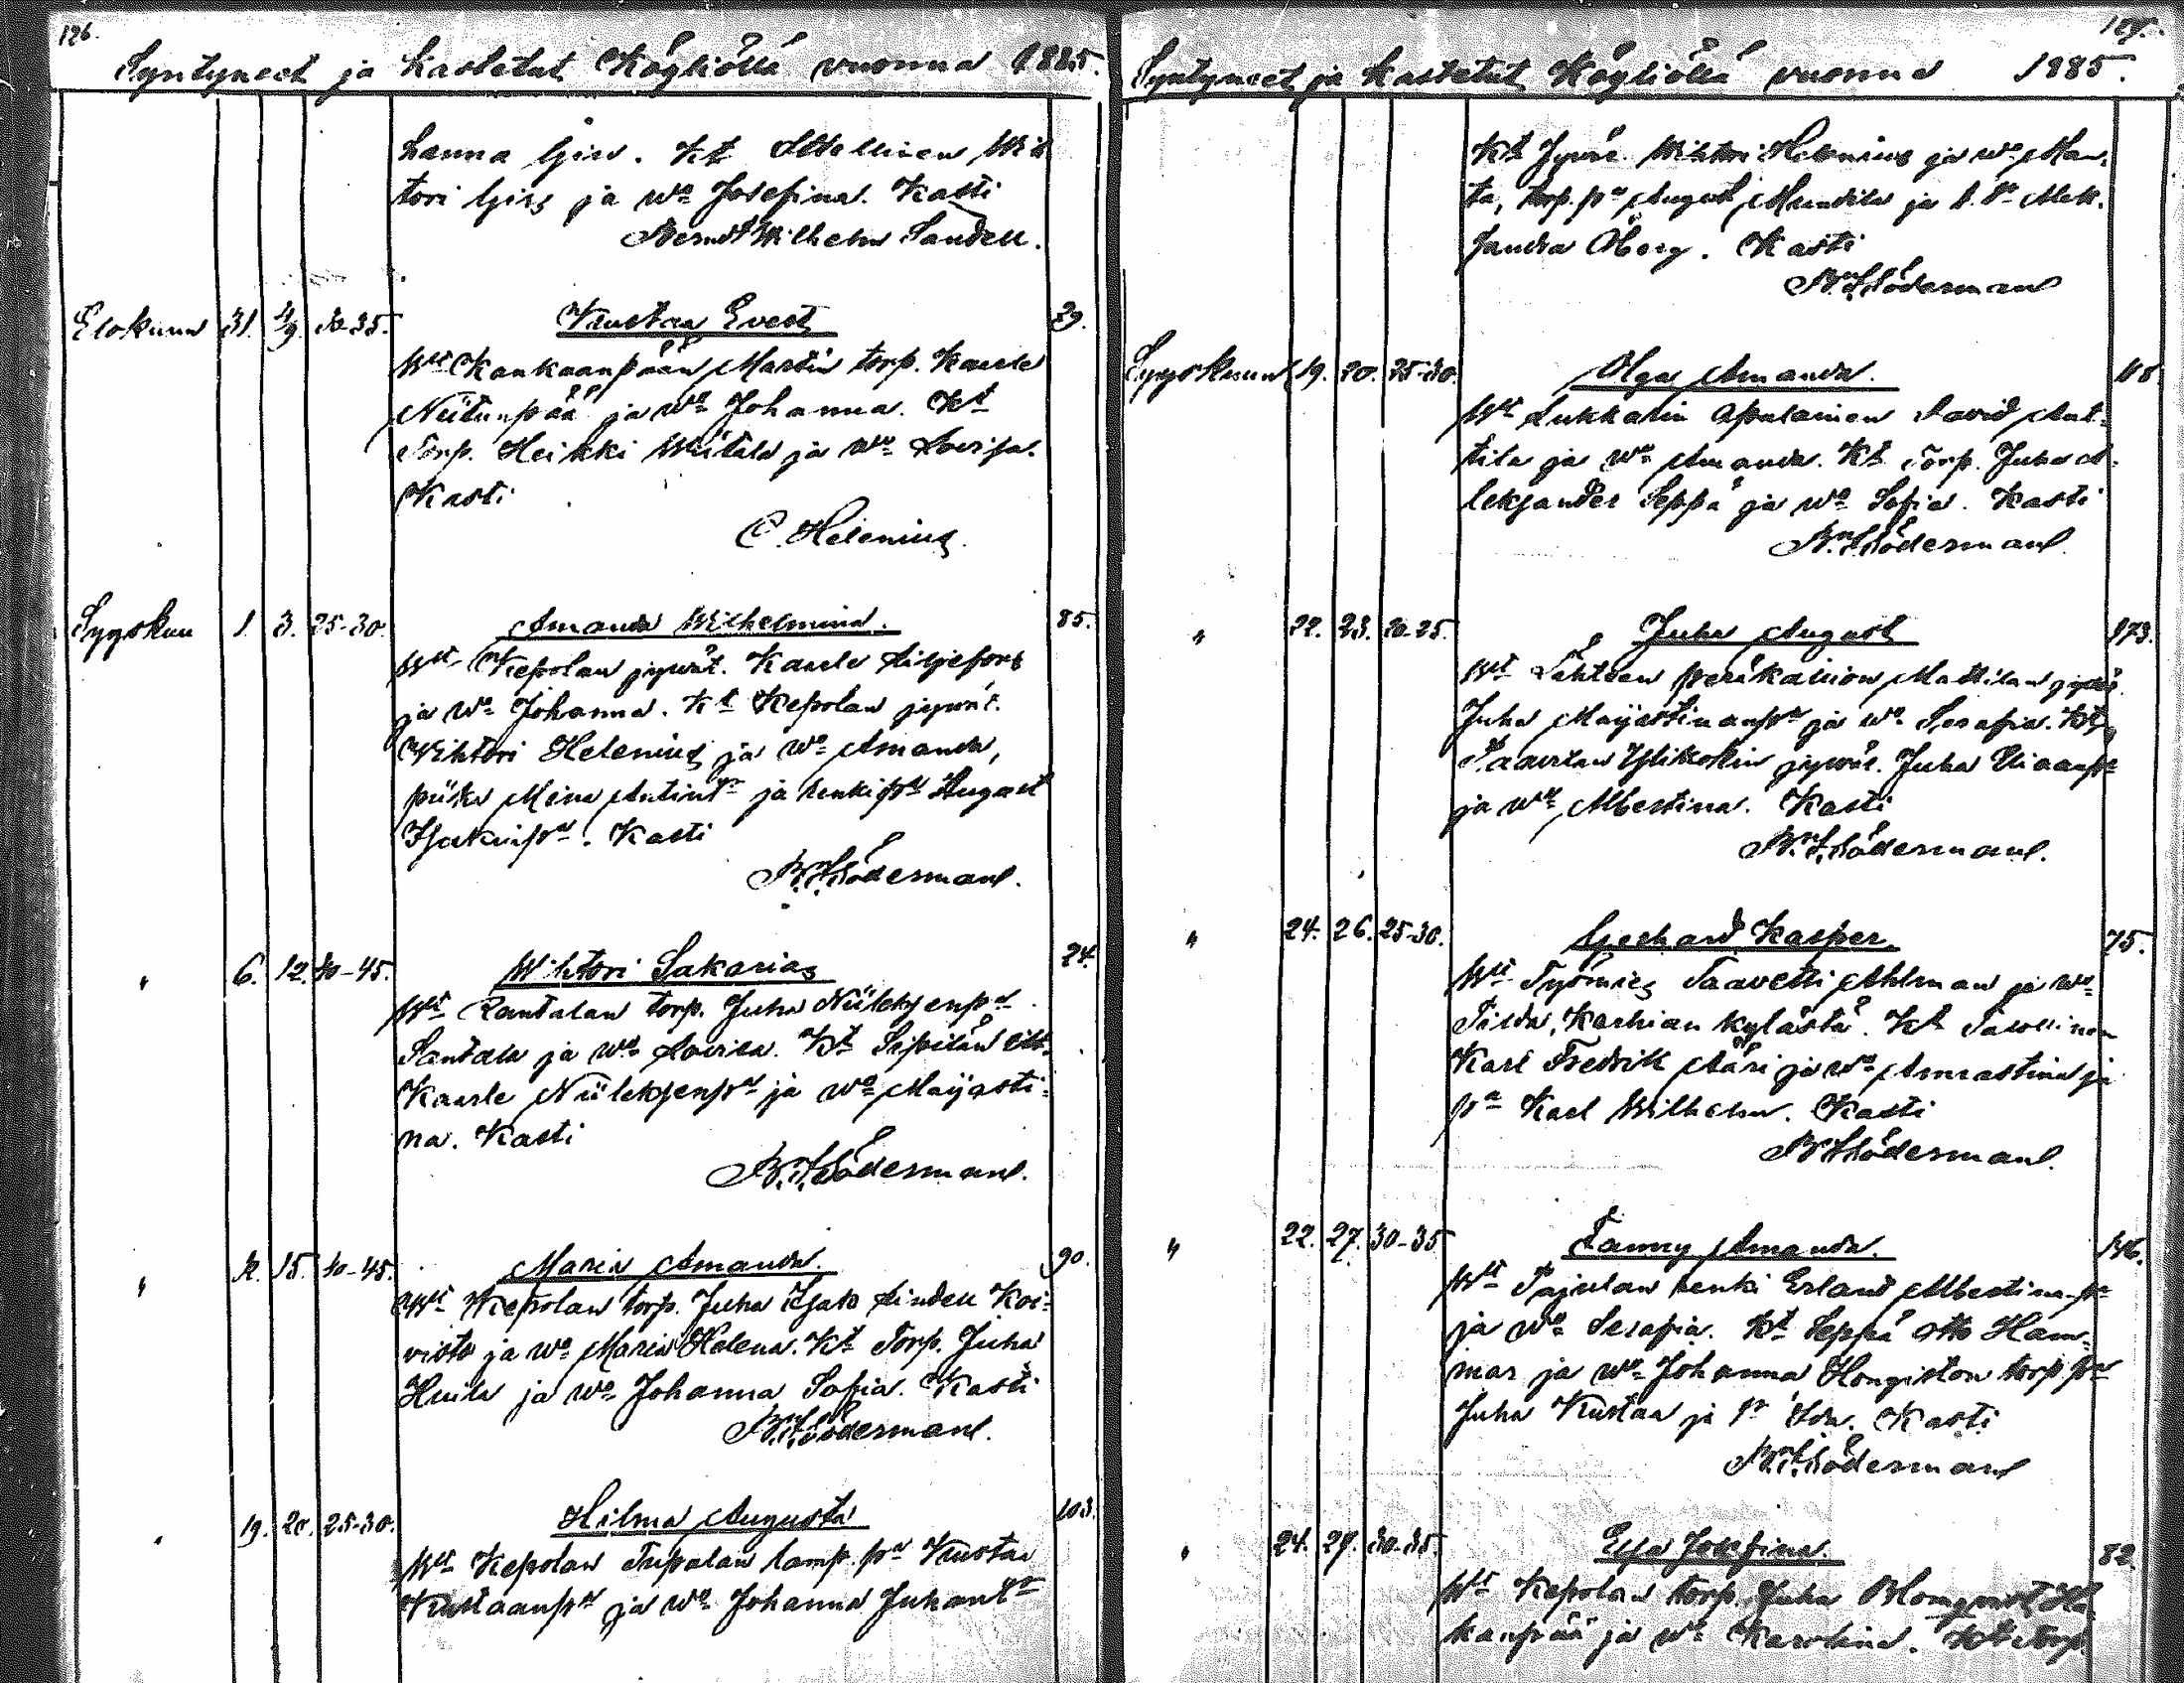 126.
Syntyneet ja kastetut Köyliöllä vuonna 1885.
hanna Giss. Kt Itsellinen Wih
tori Giss ja Wo Josefina. Kasti
Bernd Wilhelm Sandell.
Elokuun 31. 4/9. 30-35. Kustaa Evert 29.
Wt Kankaanpään Martin torp. Kaarle
Niitunpää ja Wo Johanna. Kt
Torp. Heikki Wiitala ja Wo Lovisa.
Kasti
C. Helenius.
Syyskuu 1. 3. 25-30. Amanda Wilhelmina. 85.
Wt Kepolan jyvät. Kaarle Liljefors
ja Wo Johanna. Kt Kepolan jyvät.
Wihtori Helenius ja Wo Amanda,
piika Mina Antint. ja renki August
Isakinp. Kasti
Södermanl.
" 6. 12. 40-45. Wihtori Sakarias 24.
Wt Rantalan torp. Juha Niileksenp
Santala ja Wo Lovisa. Kt Sipilän
Kaarle Niileksenp ja Wo Maijasti-
na. Kasti
Södermanl.
" 12. 15. 40-45. Maria Amanda. 90.
Wt Kepolan torp. Juha Isak Lindell Koi-
visto ja Wo Maria Helena. Kt Torp. Juha
Huila ja Wo Johanna Sofia. Kasti
Södermanl.
" 19. 20. 25-30. Hilma Augusta 103.
Wt Kepolan Tupalan lamp. p Kustaa
Kustaanp ja Wo Johanna Juhant
127.
Syntyneet ja kastetut Köyliöllä vuonna 1885.
Kt Jyvät. Wihtori Helenius ja Wo Man-
ta, torp. p August Mundila ja Alek-
sandra Öberg. Kasti
Södermanl
Syyskuun 19. 20. 25-30. Olga Amanda.
Wt Lukkalin apulainen David Ant-
tila ja Wo Amanda. Kt Torp. Juha A-
leksander Seppä ja Wo Sofia. Kasti
Södermanl.
" 22. 23. 20-25. Juha August 173.
Wt Tuhtaan peräkallion Mattilan
Juha Maijastinanp ja Wo Serafia. Kt
Paavelan Ylikoskin jyvät. Juha
ja Wo Albertina. Kasti
Södermanl.
" 24. 26. 25-30. Gerhard Kasper 75.
Wt Työmies Taavetti Ahlman ja Wo
Tilda, Karhian kylästä. Kt Talollinen
Karl Fredrik Ääri ja Wo Annastina ja
p Karl Wilhelm. Kasti
Södermanl.
" 22. 27. 30-35 Fanny Amanda. 146.
Wt Pajulan renki Erland Albertinanp
ja Wo Serafia. Kt Seppä Otto Ham-
mar ja Wo Johanna Hongiston torp. p
Juha Kustaa ja Ida. Kasti
Södermanl
" 24. 27. 30-35. Eva Josefina. 82.
Wt Kepolan torp. Juha Blomqvist
kanpää ja Wo Karolina. Kt torp.